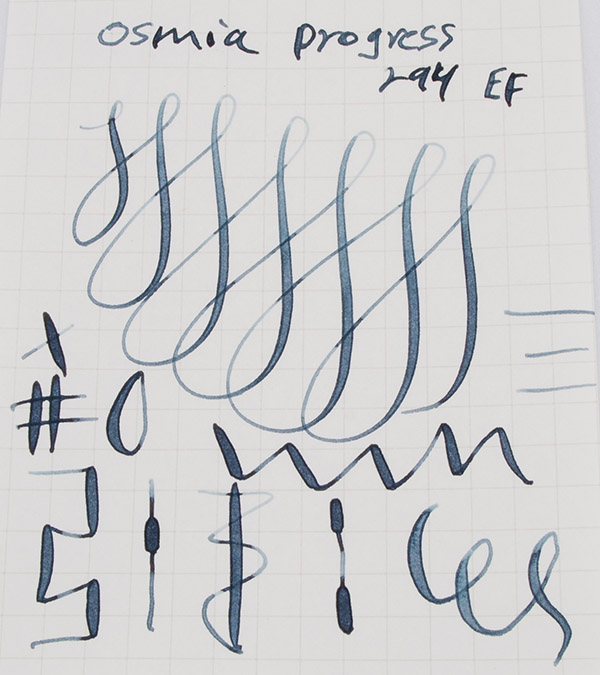 osmia progress
294 EF